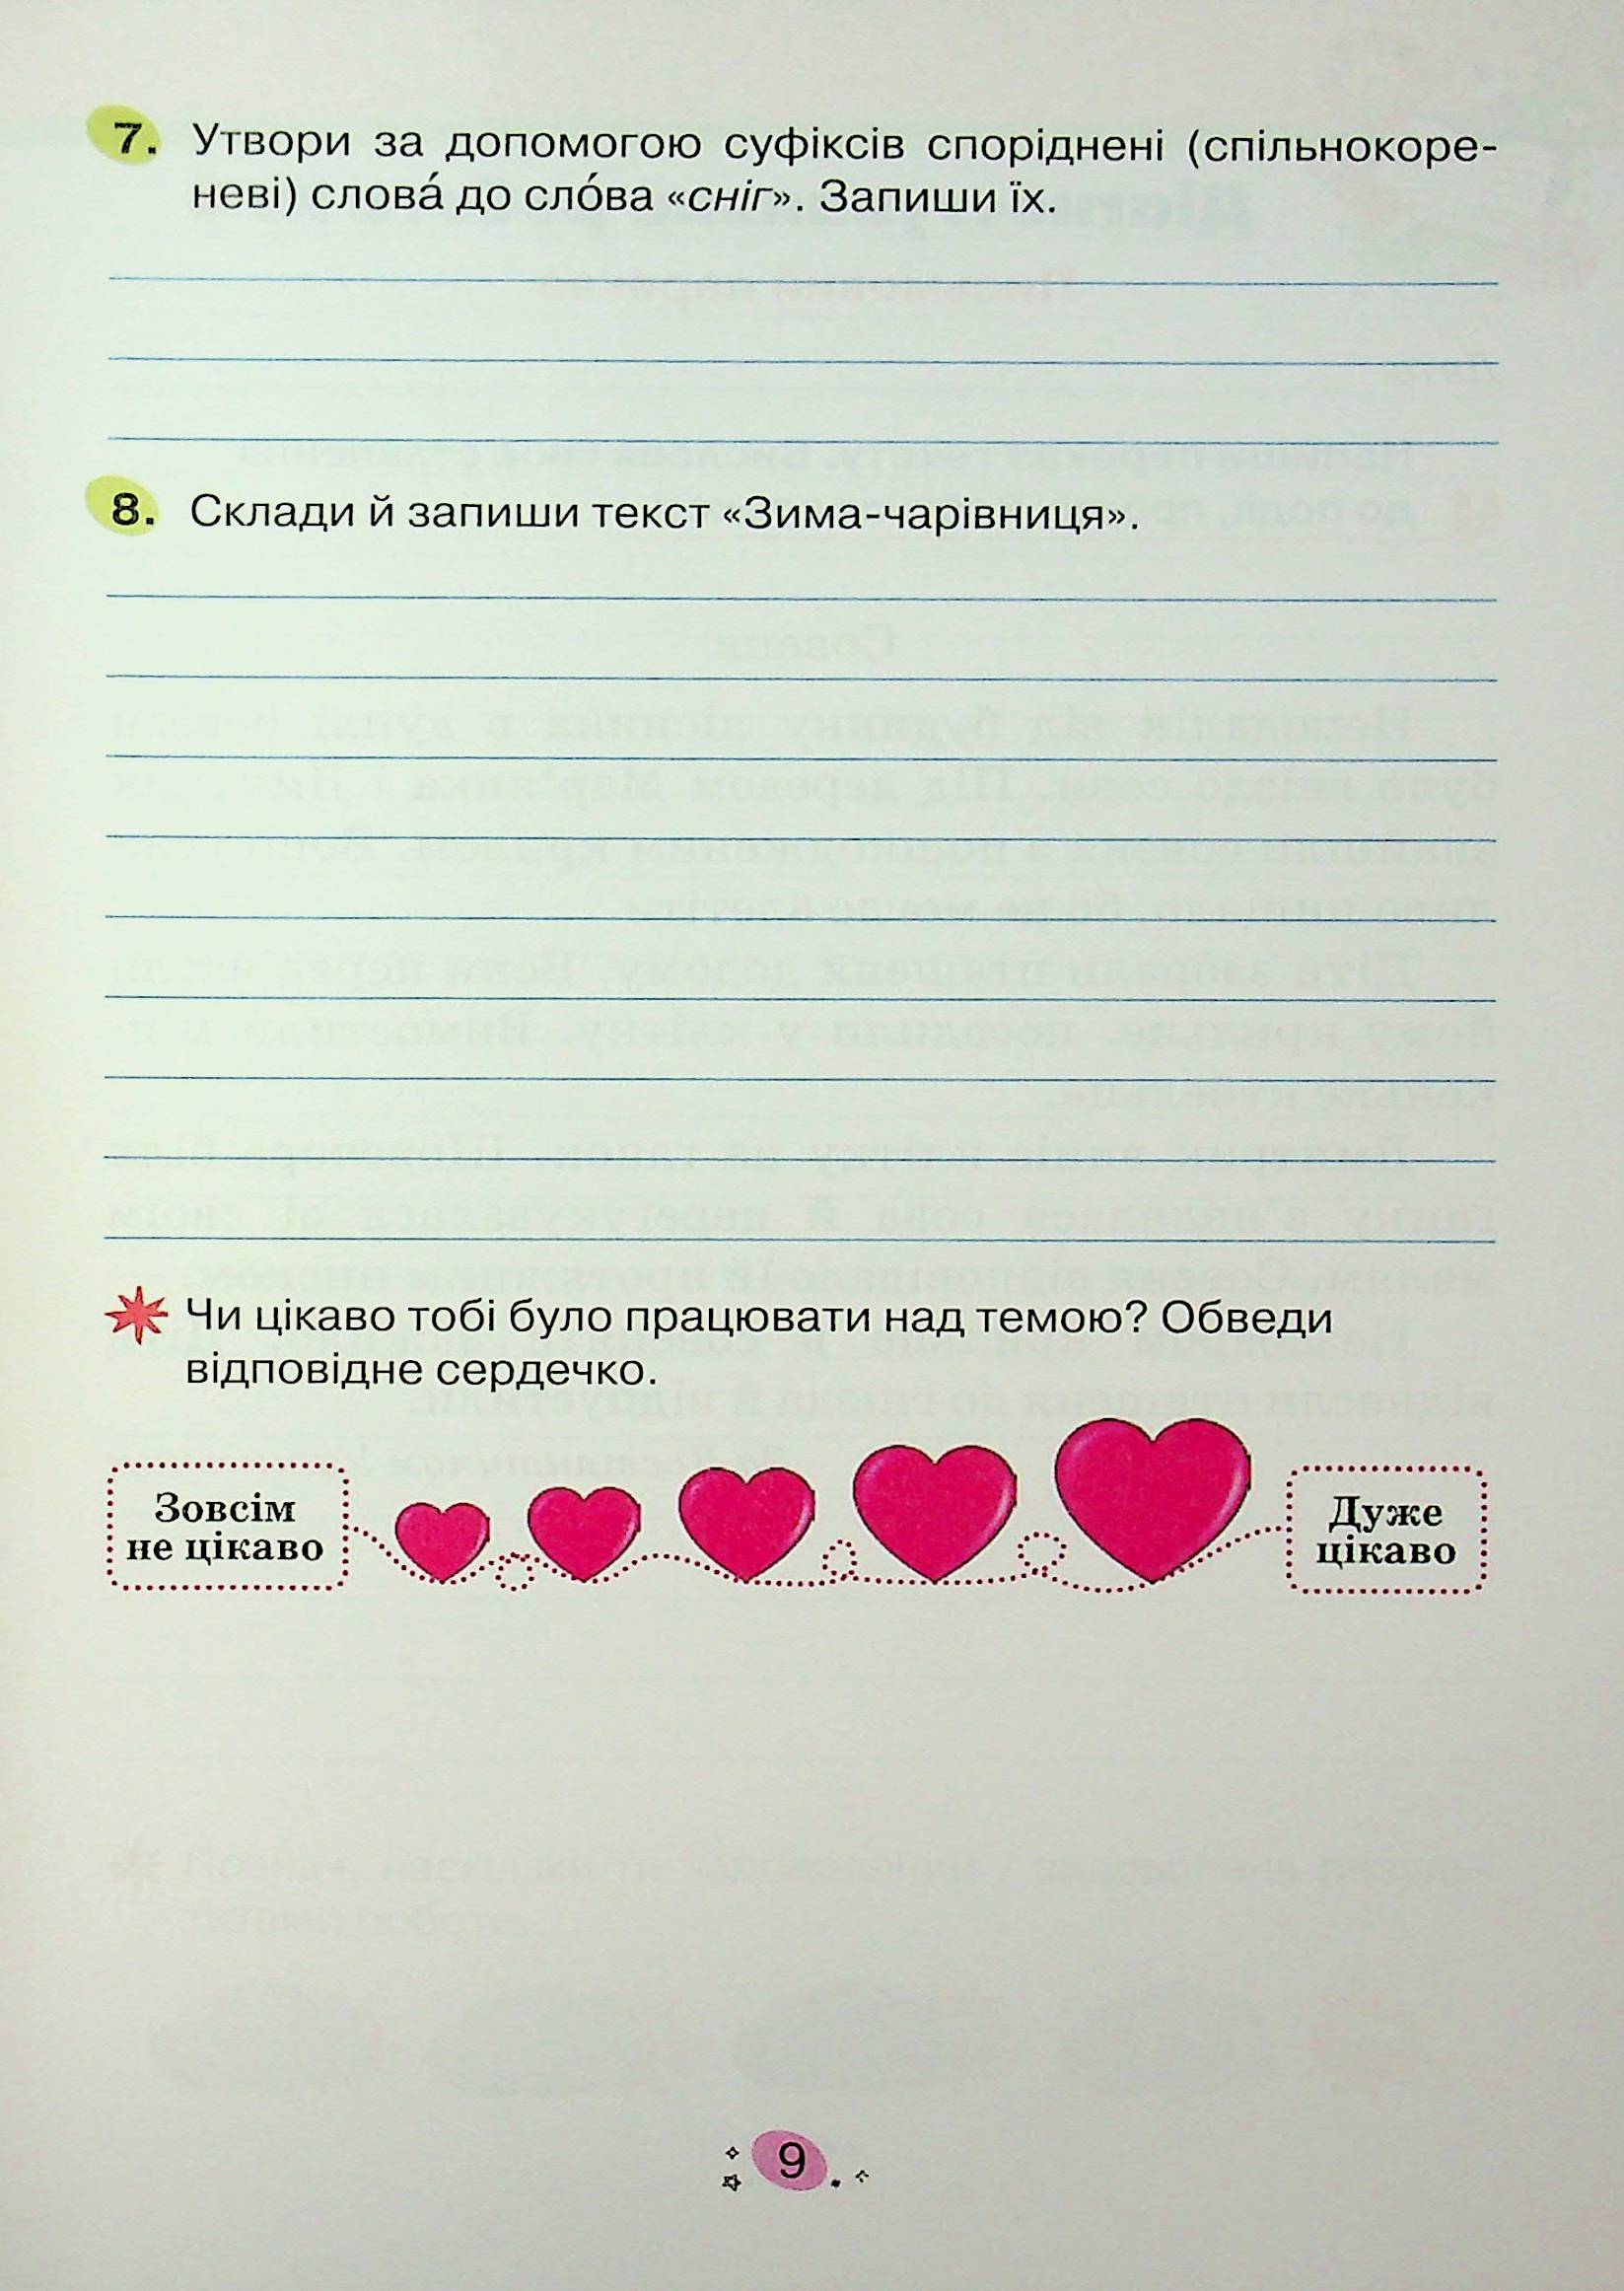 7. Утвори за допомогою суфіксів споріднені (спільнокоре-
неві) слова́ до сло́ва «сніг». Запиши їх.
8. Склади й запиши текст «Зима-чарівниця».
Чи цікаво тобі було працювати над темою? Обведи
відповідне сердечко.
Зовсім
не цікаво
Дуже
цікаво
9